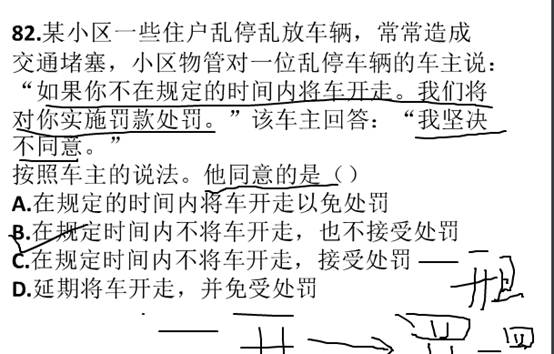 82.某小区一些住户乱停乱放车辆，常常造成
交通堵塞，小区物管对一位乱停车辆的车主说：
“如果你不在规定的时间内将车开走。我们将
对你实施罚款处罚。”该车主回答：“我坚决
不同意。”
按照车主的说法。他同意的是（）
A.在规定的时间内将车开走以免处罚
B.在规定时间内不将车开走，也不接受处罚
C.在规定时间内不将车开走，接受处罚
D.延期将车开走，并免受处罚